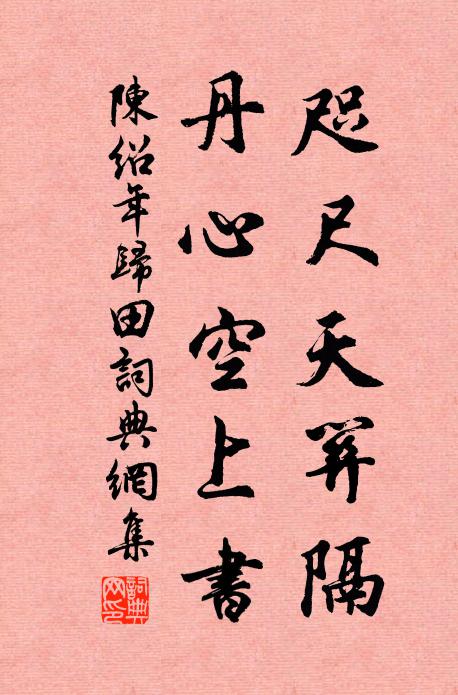 咫尺天隔
丹心空上書
陳紹年歸田詞典網集
詞典
网印